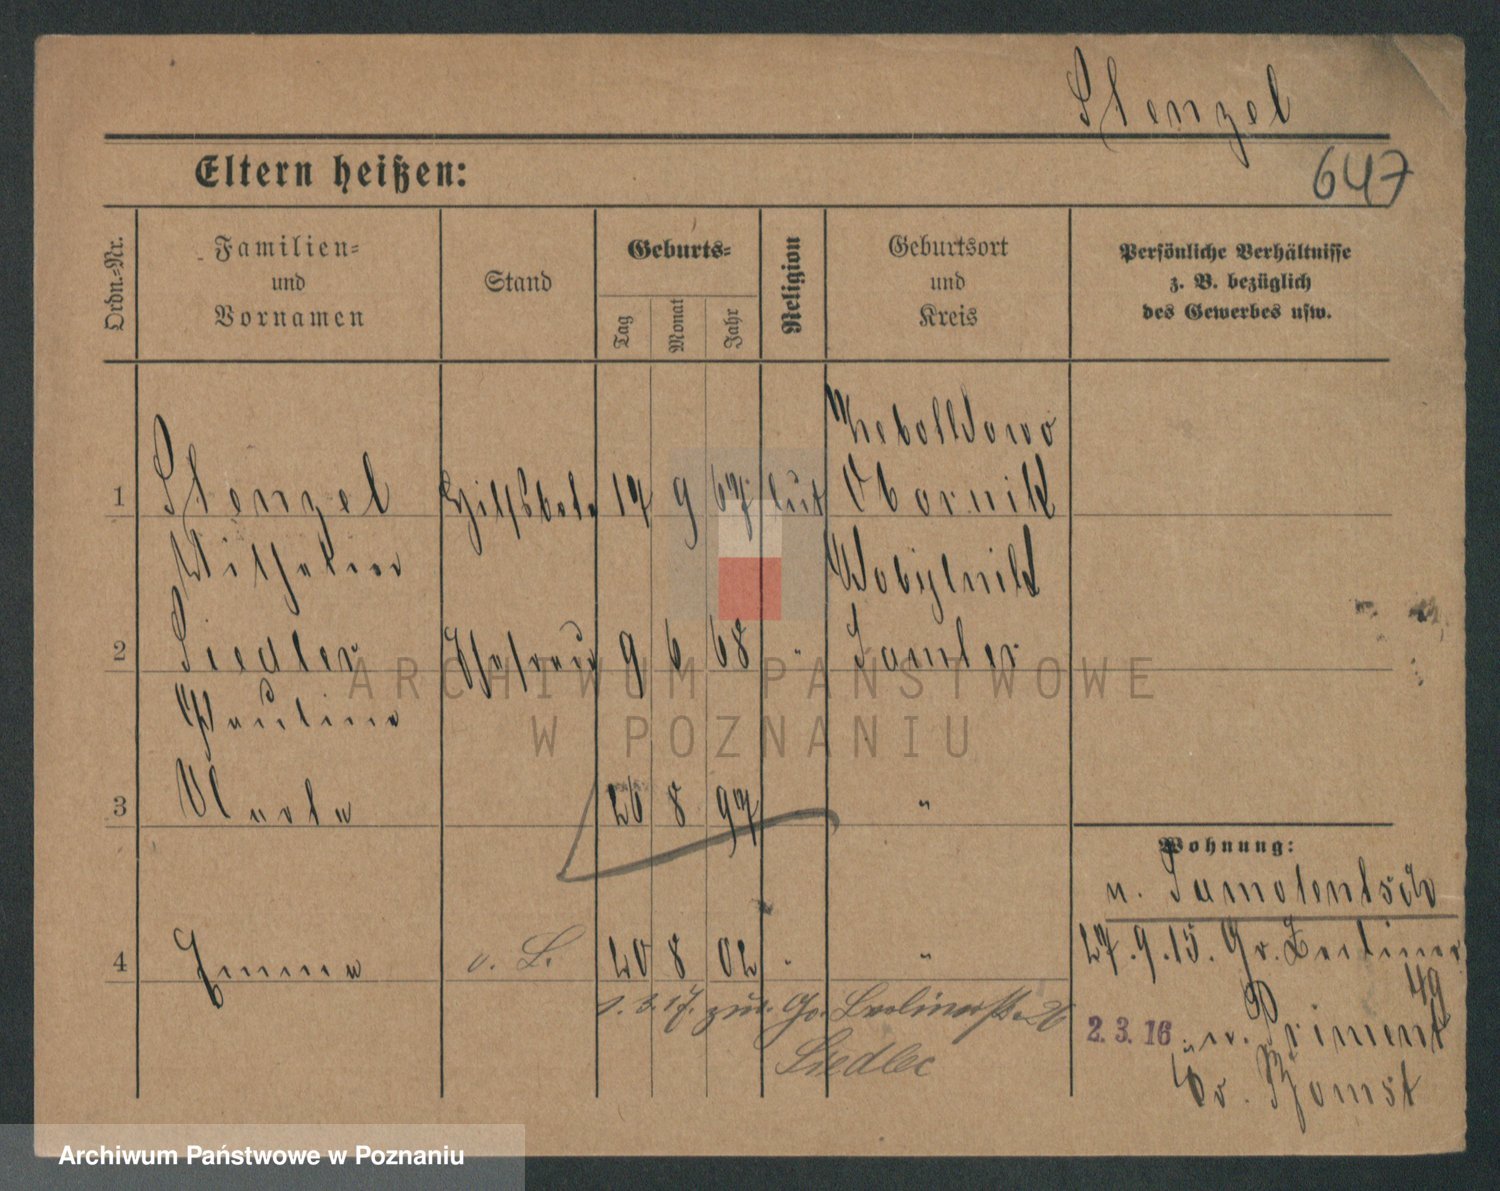 Stenzel
Eltern heißen:
647
Ordn.-Nr.
Familien-
und
Vornamen
Stand
Geburts-
Tag
Monat
Jahr
Religion
Geburtsort
und
Kreis
Persönliche Verhältnisse
z. B. bezüglich
des Gewerbes usw.
1 Stenzel Hilfsbote 17 9 67 lut Obornik
Wilhelm
2 Siedler Ehefrau 9 6 68 " Samter
Pauline
3 Marta 26 8 97 "
Wohnung:
n. Samotentsch
27.9.15. Gr. Berliner
49
4 Emma v. L. 20 8 02 " "
1.3.17. zur. Gr. Berlinerstr. 26
Siedlec
2.3.16. n. Priment
Kr. Bomst
ARCHIWUM PAŃSTWOWE
W POZNANIU
Archiwum Państwowe w Poznaniu